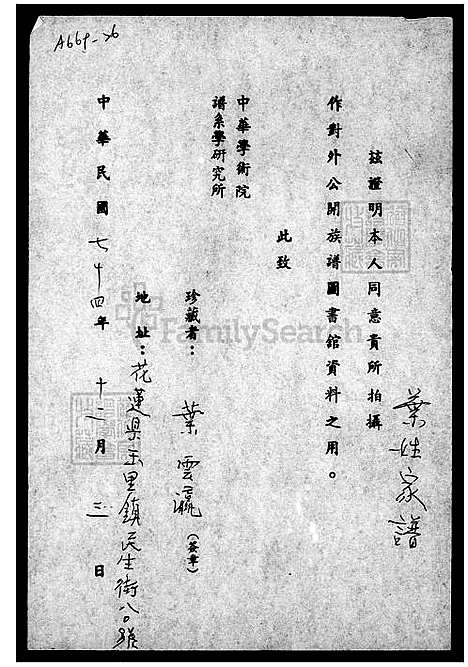 A669-26
葉姓家譜
茲證明本人同意貴所拍攝
作對外公開族譜圖書館資料之用。
此致
中華學術院
譜系學研究所
珍藏者：葉雲瀛（簽章）
地址：花蓮県玉里鎮民生街八0號
中華民國七十四年十二月三日
FamilySearch